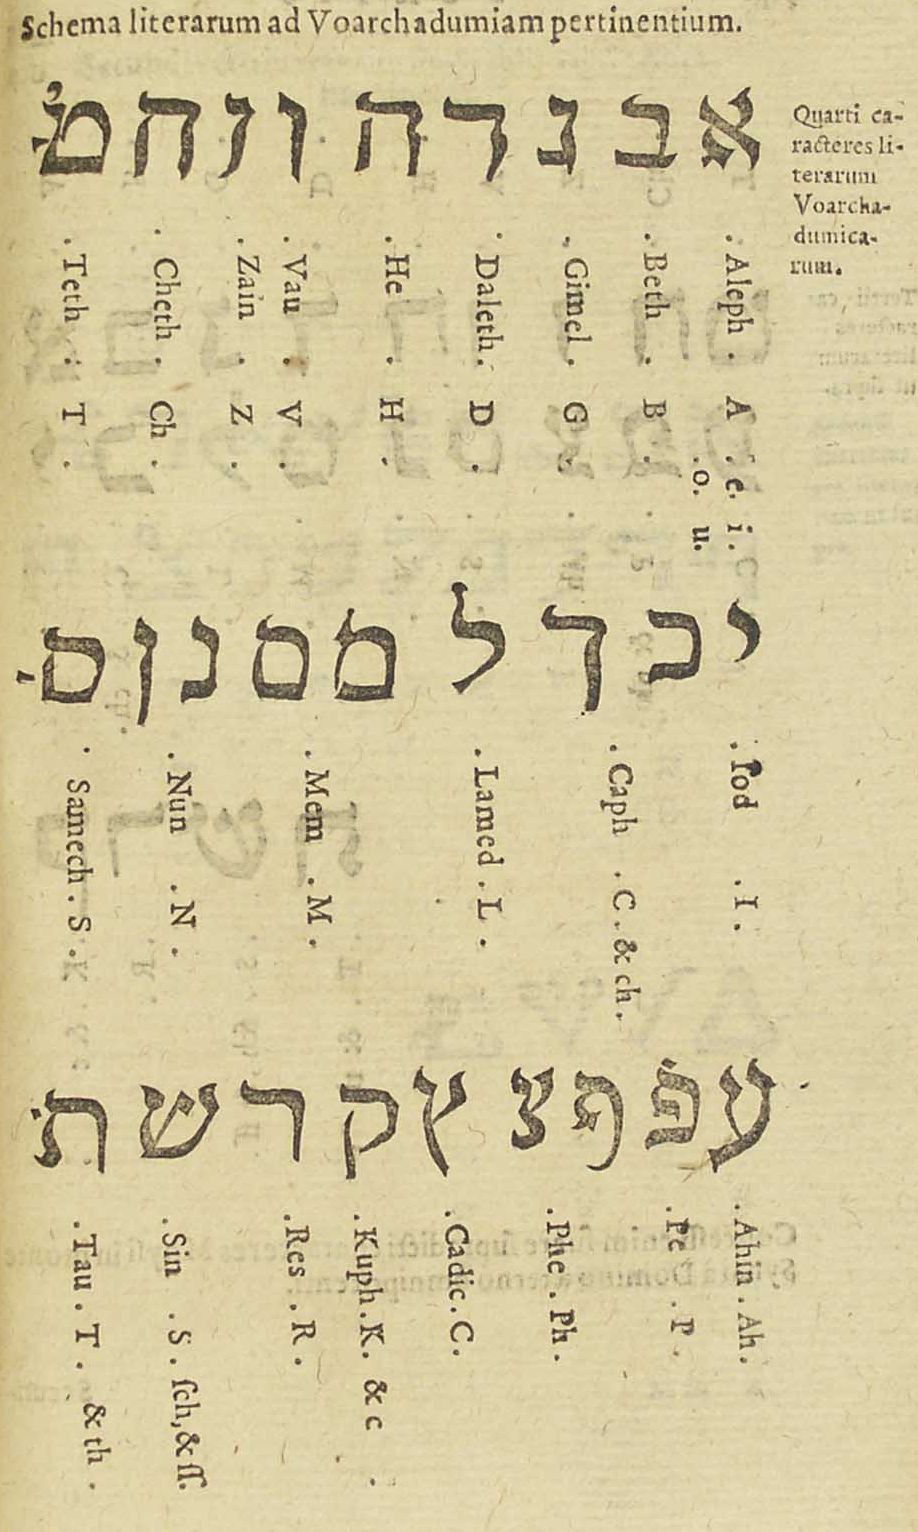 Schema literarum ad Voarchadumiam pertinentium.
Quarti ca-
racteres li-
terarum
Voarcha-
dumica-
rum.
א ב נ ד ה ו ז ח ט
. Aleph . A . e. i .
. o. u.
. Beth . B .
. Gimel . G .
. Daleth . D .
. He . H .
. Vau . V .
. Zain . Z .
. Cheth . Ch .
. Teth . T .
י כ ך ל מ ם נ ן ס
. Iod . I .
. Caph . C . & ch .
. Lamed . L .
. Mem . M .
. Nun . N .
. Samech . S .
ע פ ף צ ץ ק ר ש ת
. Ahin . Ah .
. Pe . P .
. Phe . Ph .
. Cadic . C .
. Kuph . K . & c .
. Res . R .
. Sin . S . ſch, & ſſ.
. Tau . T . & th .